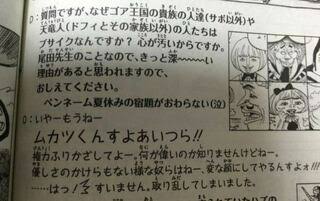 D:質問ですが、なぜゴア王国の貴族の人達(サボ以外)や
天竜人(ドフィとその家族以外)の人たちは
ブサイクなんですか?心が汚いからですか。
尾田先生のことなので、きっと深〜〜い
理由があると思われますので、
おしえてください。
ペンネーム夏休みの宿題がおわらない(泣)
O:いやーもうねー
ムカツくんすよあいつら!!
権力ふりかざしてよー。何が偉いのか知りませんけどねー。
優しさのかけらもない様な奴らはねー、変な顔にしてやるんすよォ!!
……はっ!すいません。取り乱してしまいました。